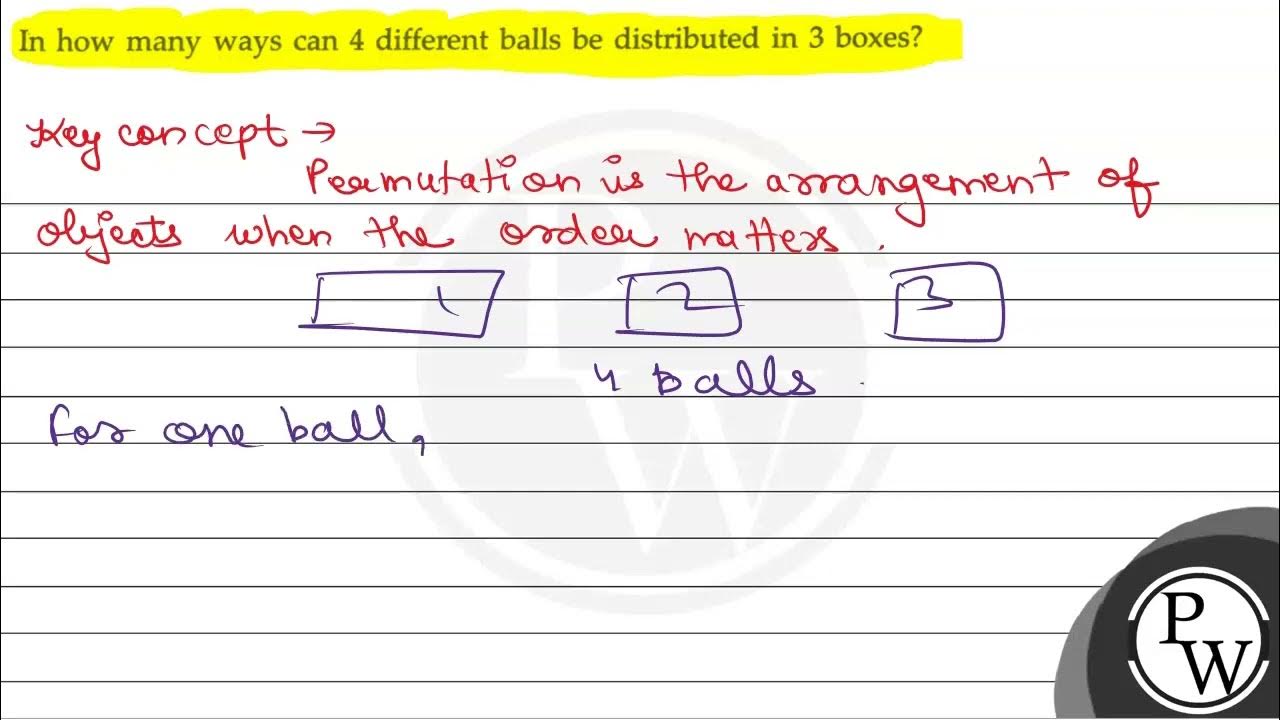 In how many ways can 4 different balls be distributed in 3 boxes?
Key concept →
Permutation is the arrangement of
objects when the order matters.
1 2 3
4 balls
for one ball,
P
W
PW